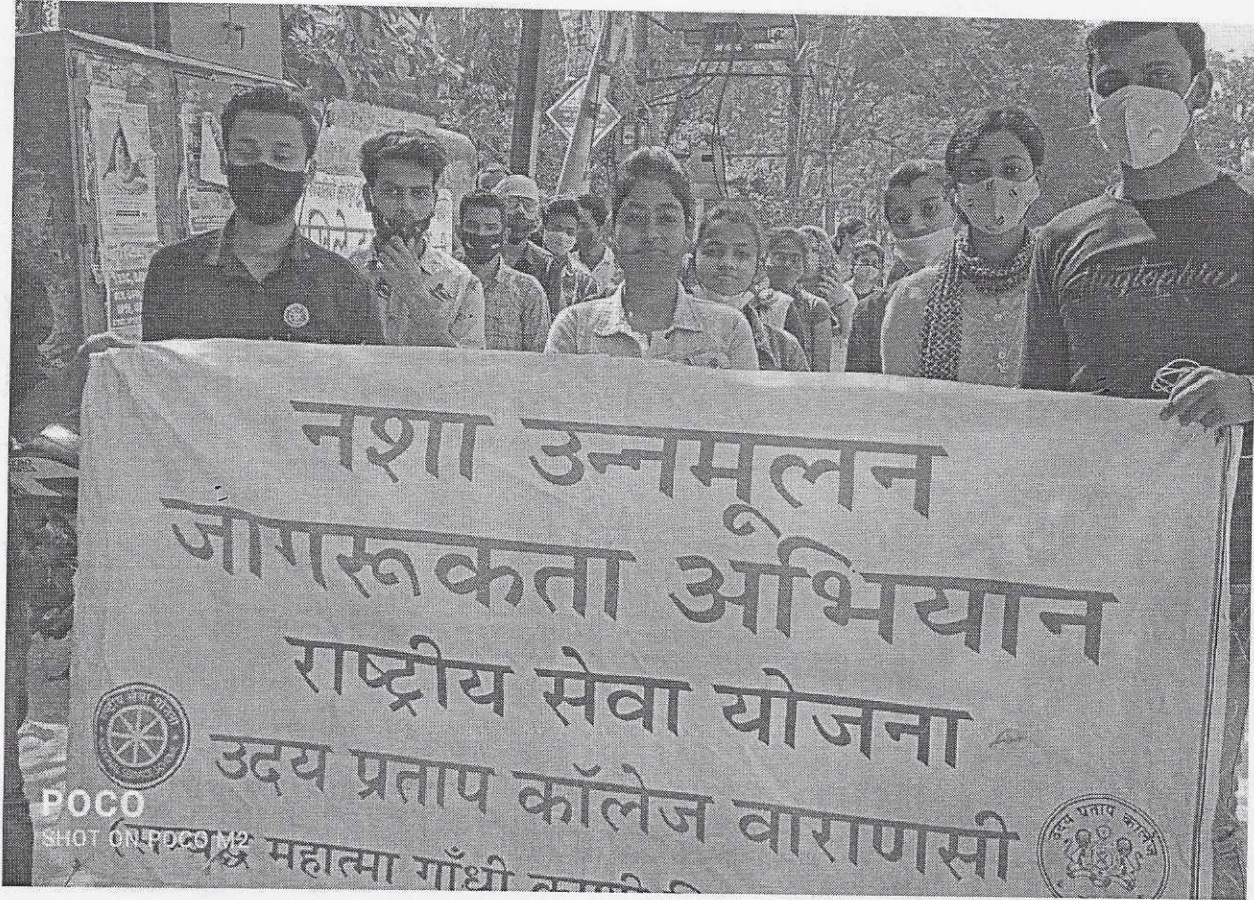 नशा उन्नमूलन
जागरूकता अभियान
राष्ट्रीय सेवा योजना
उदय प्रताप कॉलेज वाराणसी
महात्मा गाँधी
उदय प्रताप कालेज
POCO
SHOT ON POCO M2